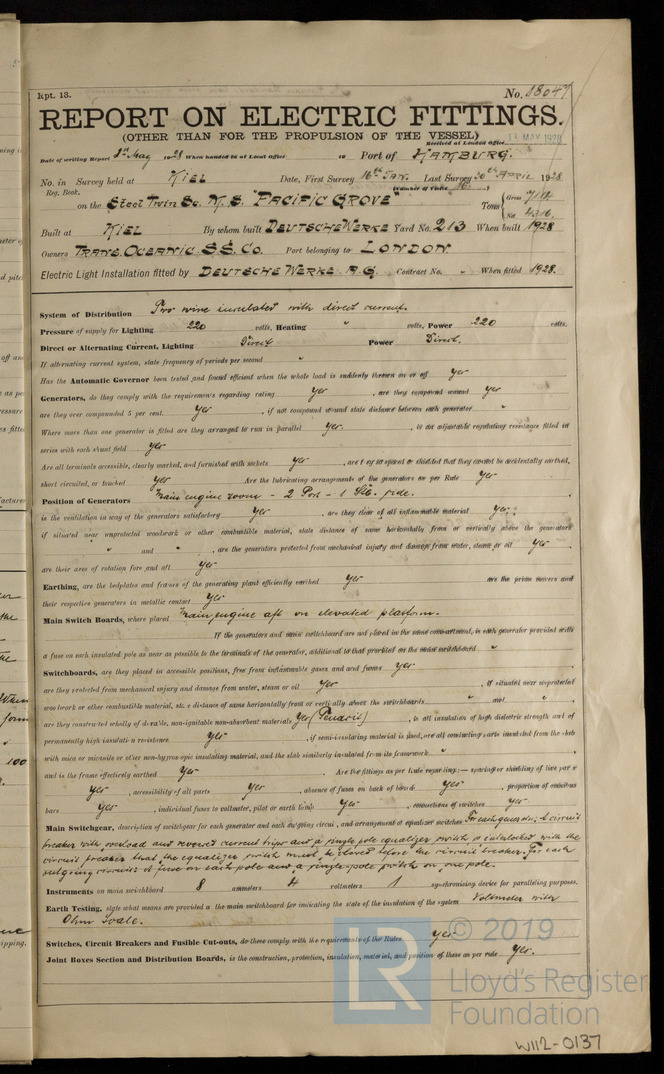 Rpt. 13.
No. 18047
REPORT ON ELECTRIC FITTINGS.
(OTHER THAN FOR THE PROPULSION OF THE VESSEL)
Received at London Office MAY 1928
Date of writing Report 8th May 1928 When handed in at Local Office 10 Port of HAMBURG.
No. in Survey held at KIEL Date, First Survey 16th JAN. Last Survey 20th APRIL 1928
Reg. Book. (Number of Visits 16)
on the Steel Twin Sc. M.S. "PACIFIC GROVE" Tons { Gross 7114
Net 4316
Built at KIEL By whom built DEUTSCHE WERKE Yard No. 213 When built 1928
Owners TRANS. OCEANIC S.S. Co. Port belonging to LONDON
Electric Light Installation fitted by DEUTSCHE WERKE A.G. Contract No. " When fitted 1928.
System of Distribution Two wire insulated with direct current.
Pressure of supply for Lighting 220 volts, Heating " volts, Power 220 volts.
Direct or Alternating Current, Lighting Direct Power Direct.
If alternating current system, state frequency of periods per second "
Has the Automatic Governor been tested and found efficient when the whole load is suddenly thrown on or off yes
Generators, do they comply with the requirements regarding rating yes, are they compound wound yes
are they over compounded 5 per cent. yes, if not compound wound state distance between each generator "
Where more than one generator is fitted are they arranged to run in parallel yes, is an adjustable regulating resistance fitted in
series with each shunt field yes
Are all terminals accessible, clearly marked, and furnished with sockets yes, are they so spaced or shielded that they cannot be accidentally earthed,
short circuited, or touched yes Are the lubricating arrangements of the generators as per Rule yes
Position of Generators Main engine room - 2 Port - 1 Stb. side.
is the ventilation in way of the generators satisfactory yes, are they clear of all inflammable material yes,
if situated near unprotected woodwork or other combustible material, state distance of same horizontally from or vertically above the generators
" and ", are the generators protected from mechanical injury and damage from water, steam or oil yes
are their axes of rotation fore and aft yes
Earthing, are the bedplates and frames of the generating plant efficiently earthed yes are the prime movers and
their respective generators in metallic contact yes
Main Switch Boards, where placed Main engine aft on elevated platform.
If the generators and main switchboard are not placed in the same compartment, is each generator provided with
a fuse on each insulated pole as near as possible to the terminals of the generator, additional to that provided on the main switchboard "
Switchboards, are they placed in accessible positions, free from inflammable gases and acid fumes yes
are they protected from mechanical injury and damage from water, steam or oil yes, if situated near unprotected
woodwork or other combustible material, state distance of same horizontally from or vertically above the switchboards " and "
are they constructed wholly of durable, non-ignitable non-absorbent materials yes, is all insulation of high dielectric strength and of
permanently high insulation resistance yes, if semi-insulating material is used, are all conducting parts insulated from the slab
with mica or micanite or other non-hygroscopic insulating material, and the slab similarly insulated from its framework "
and is the frame effectively earthed yes Are the fittings as per Rule regarding:— spacing or shielding of live parts
yes, accessibility of all parts yes, absence of fuses on back of board yes, proportion of omnibus
bars yes, individual fuses to voltmeter, pilot or earth lamp yes, connections of switches yes
Main Switchgear, description of switchgear for each generator and each outgoing circuit, and arrangement of equalizer switches For each generator; A circuit
breaker with overload and reversed current trips and a single pole equalizer switch so interlocked with the
circuit breaker that the equalizer switch must be closed before the circuit breaker. For each
outgoing circuit: A fuse on each pole and a single pole switch on one pole.
Instruments on main switchboard 8 ammeters 4 voltmeters 1 synchronising device for paralleling purposes.
Earth Testing, state what means are provided at the main switchboard for indicating the state of the insulation of the system Voltmeter with
Ohm Scale.
Switches, Circuit Breakers and Fusible Cut-outs, do these comply with the requirements of the Rules yes
Joint Boxes Section and Distribution Boards, is the construction, protection, insulation, material, and position of these as per rule yes.
© 2019
LR
Lloyd's Register
Foundation
W112-0137